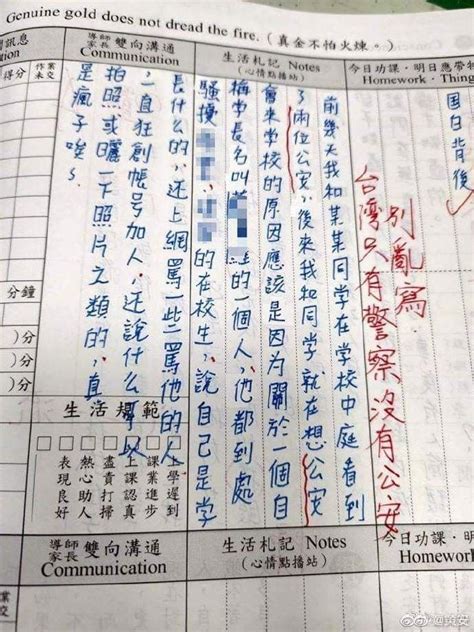 Genuine gold does not dread the fire.(真金不怕火煉。)
訊息
tion
得分
作業未交
導師
家長
雙向溝通
Communication
生活札記 Notes
(心情點播站)
今日功課‧明日應帶物
Homework‧Thing
國日背後
別亂寫.
台湾只有警察没有公安
前幾天我和某某同学在学校中庭看到
了兩位公安,後來我和同学就在想公安
會来学校的原因應該是因为關於一個自
稱学長名叫
的一個人,他都到處
騷擾
的在校生,說自己是学
長什么的,还上網罵一些罵他的人
,一直狂創帳号加人,还說什么可以
拍照或曬一下照片之類的,真
是瘋子唉~
分鐘
)分
)分
)分
生活規範
上學遲到
課業進步
上課認真
盡責打掃
熱心助人
表現良好
業
交
導師
家長
雙向溝通
Communication
生活札記 Notes
(心情點播站)
今日功課‧明
Homework
@黃安